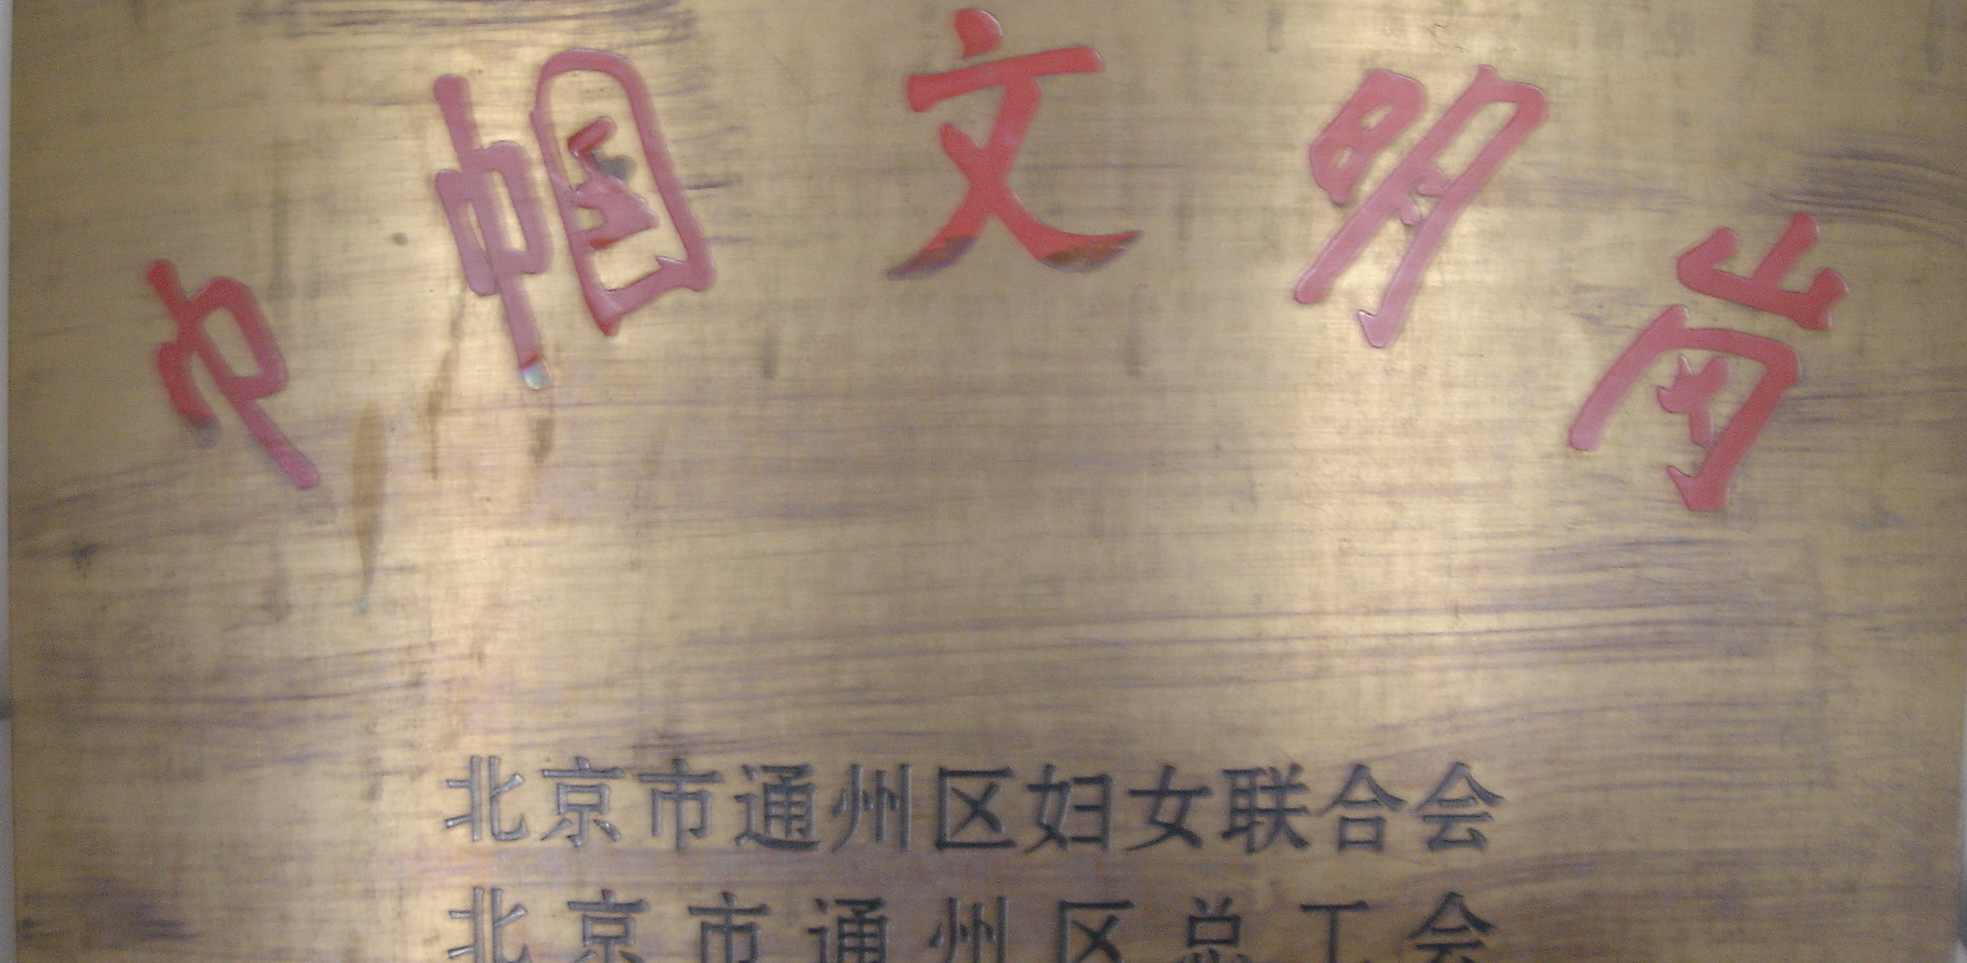 巾帼文明岗
北京市通州区妇女联合会
北京市通州区总工会